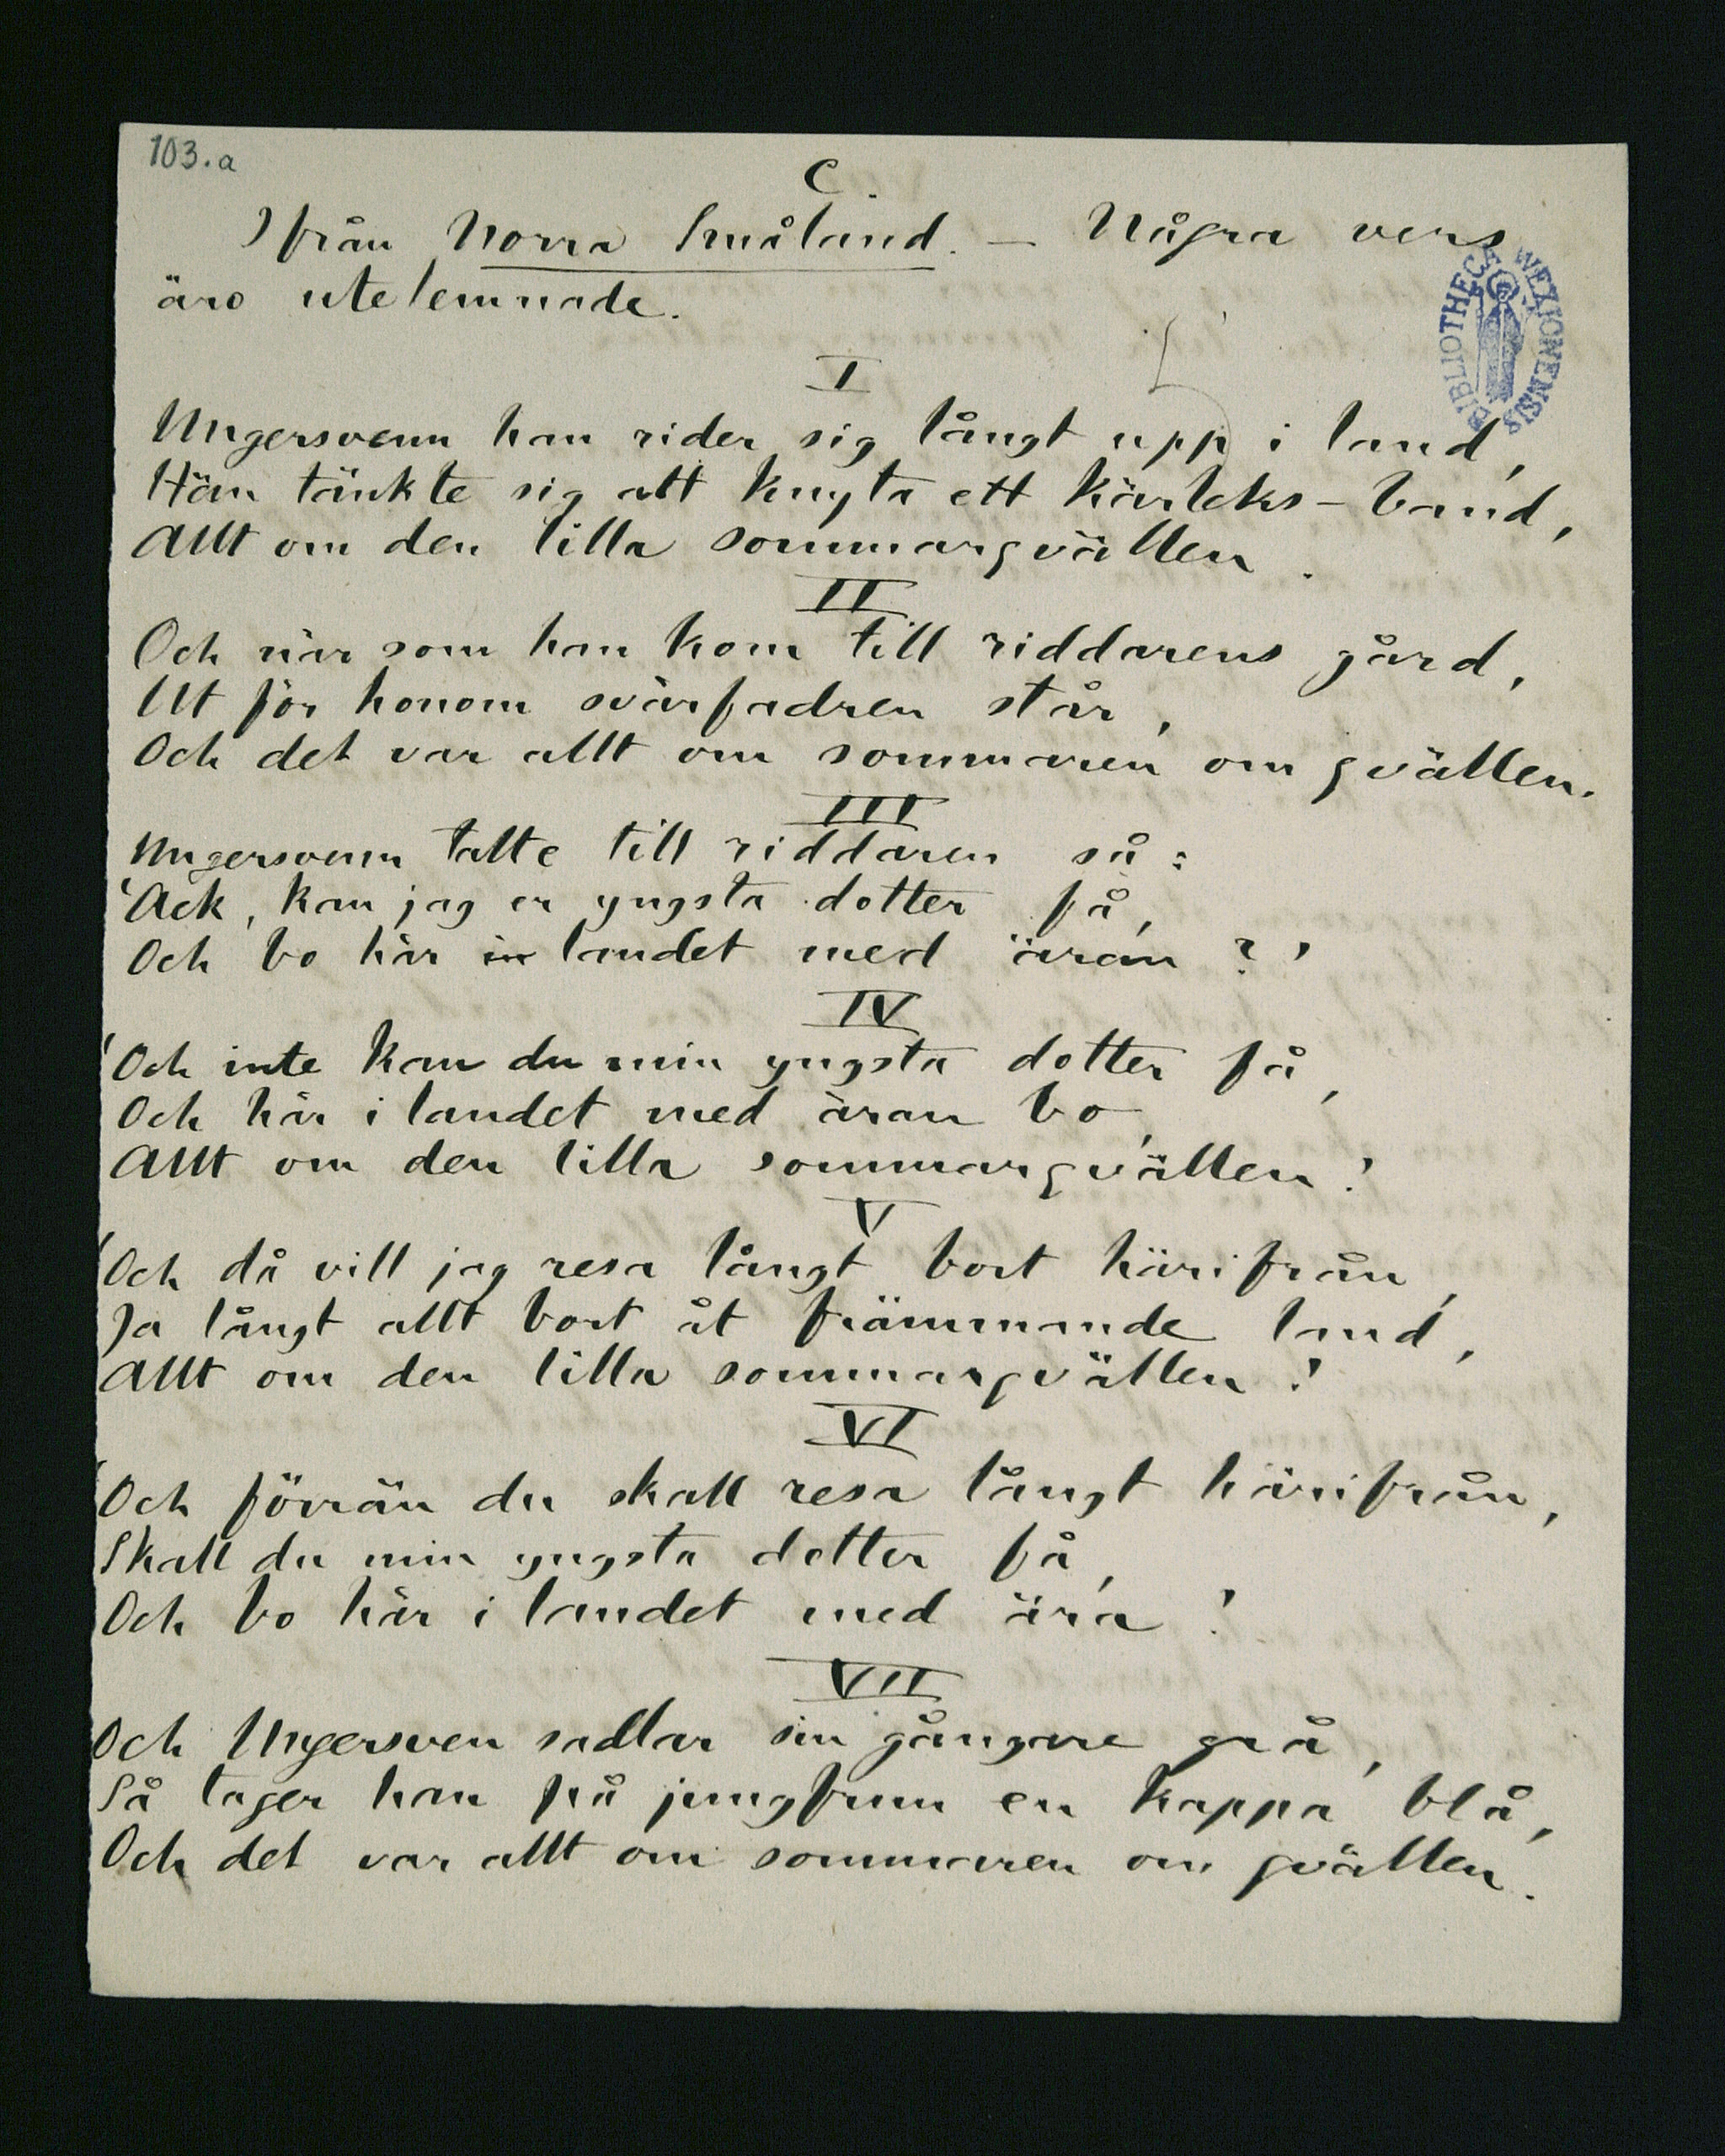 103.a
C.
Ifrån Norra Småland. — Några vers
äro utelemnade.
BIBLIOTHECA WEXIONENSIS
I
Ungersvenn han rider sig långt upp i land,
Han tänkte sig att knyta ett kärleks-band,
Allt om den lilla sommarqvällen.
II
Och när som han kom till riddarens gård,
Ut för honom svärfadren står,
Och det var allt om sommaren om qvällen.
III
Ungersvenn talte till riddaren så:
'Ack, kan jag er yngsta dotter få,
Och bo här in landet med äran?'
IV
'Och inte kan du min yngsta dotter få,
Och här i landet med äran bo,
Allt om den lilla sommarqvällen!'
V
'Och då vill jag resa långt bort härifrån,
Ja långt allt bort åt främmande land,
Allt om den lilla sommarqvällen!'
VI
'Och förrän du skall resa långt härifrån,
Skall du min yngsta dotter få,
Och bo här i landet med ära!'
VII
Och Ungersven sadlar sin gångare grå,
Så tager han på jungfrun en kappa blå,
Och det var allt om sommaren om qvällen.